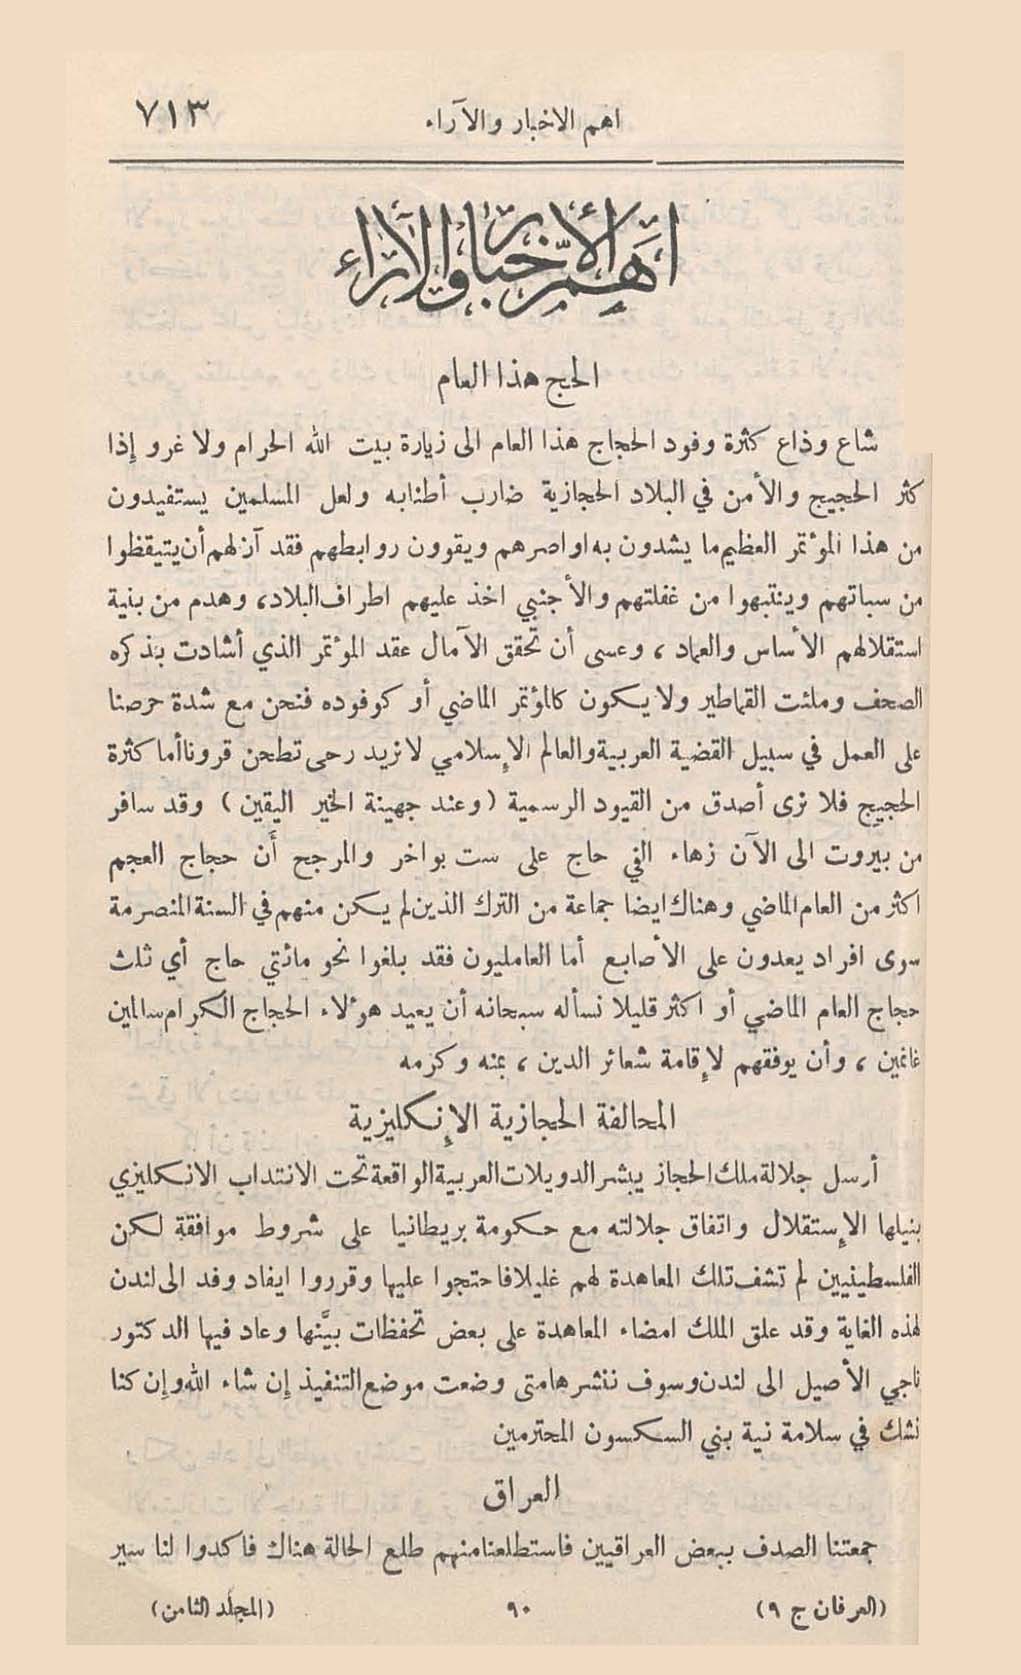 اهم الاخبار والآراء ٧١٣
اهم الأخبار والآراء
الحج هذا العام
شاع وذاع كثرة وفود الحجاج هذا العام الى زيارة بيت الله الحرام ولا غرو إذا
كثر الحجيج والأمن في البلاد الحجازية ضارب أطنابه ولعل المسلمين يستفيدون
من هذا المؤتمر العظيم ما يشدون به اواصرهم ويقوون روابطهم فقد آن لهم أن يتيقظوا
من سباتهم وينتبهوا من غفلتهم والأجنبي اخذ عليهم اطراف البلاد، وهدم من بنية
استقلالهم الأساس والعماد، وعسى أن تحقق الآمال عقد المؤتمر الذي أشادت بذكره
الصحف وملئت القماطير ولا يكون كالمؤتمر الماضي أو كوفوده فنحن مع شدة حرصنا
على العمل في سبيل القضية العربية والعالم الإسلامي لا نريد رحى تطحن قرونا أما كثرة
الحجيج فلا نرى أصدق من القيود الرسمية (وعند جهينة الخبر اليقين) وقد سافر
من بيروت الى الآن زهاء الفي حاج على ست بواخر والمرجح أن حجاج العجم
اكثر من العام الماضي وهناك ايضا جماعة من الترك الذين لم يكن منهم في السنة المنصرمة
سوى افراد يعدون على الأصابع أما العامليون فقد بلغوا نحو مائتي حاج أي ثلث
حجاج العام الماضي أو اكثر قليلا نسأله سبحانه أن يعيد هؤلاء الحجاج الكرام سالمين
غانمين، وأن يوفقهم لإقامة شعائر الدين، بمنه وكرمه
المحالفة الحجازية الإنكليزية
أرسل جلالة ملك الحجاز يبشر الدويلات العربية الواقعة تحت الانتداب الانكليزي
بنيلها الإستقلال واتفاق جلالته مع حكومة بريطانيا على شروط موافقة لكن
الفلسطينيين لم تشف تلك المعاهدة لهم غليلا فاحتجوا عليها وقرروا ايفاد وفد الى لندن
لهذه الغاية وقد علق الملك امضاء المعاهدة على بعض تحفظات بيَّنها وعاد فيها الدكتور
ناجي الأصيل الى لندن وسوف ننشرها متى وضعت موضع التنفيذ إن شاء الله وإن كنا
نشك في سلامة نية بني السكسون المحترمين
العراق
جمعتنا الصدف ببعض العراقيين فاستطلعنا منهم طلع الحالة هناك فاكدوا لنا سير
(العرفان ج ٩) ٩٠ (المجلد الثامن)